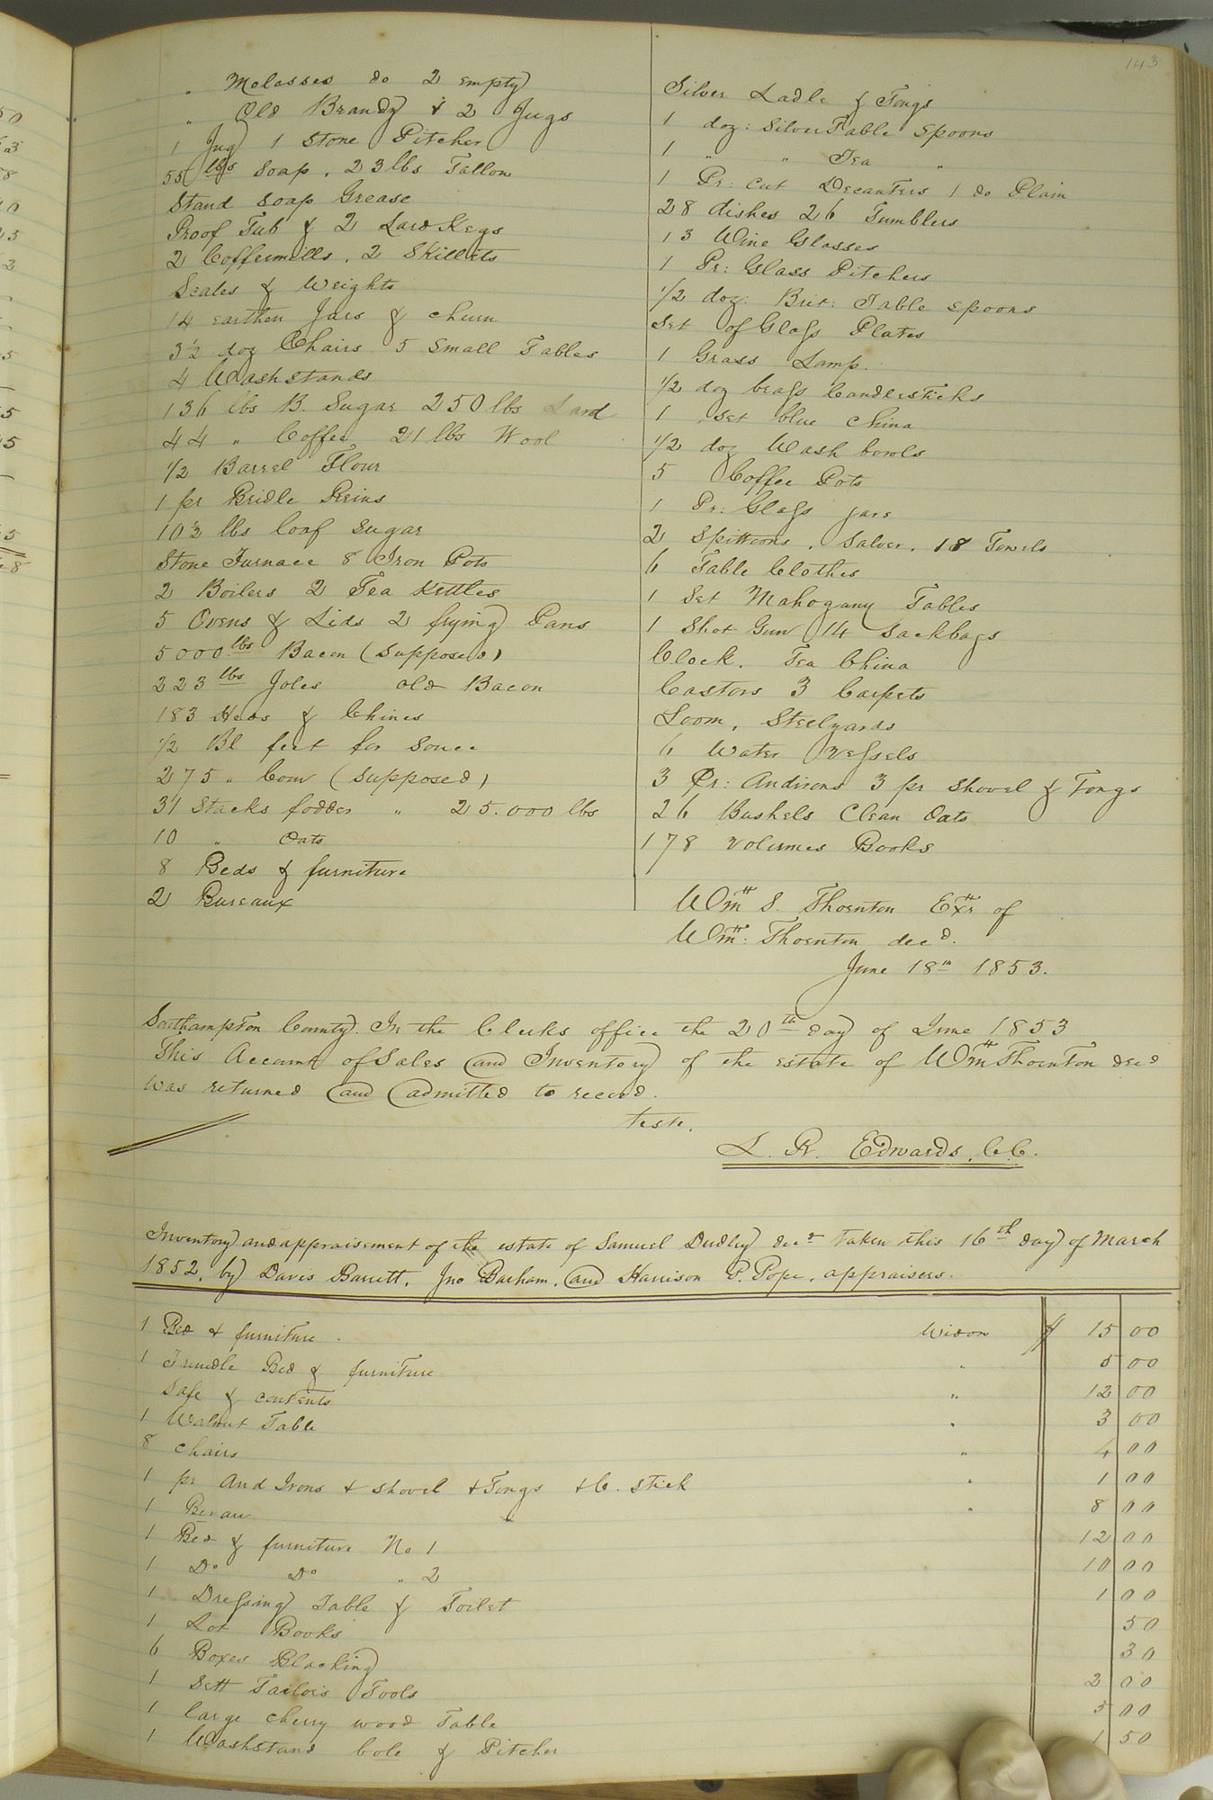 143
" Molasses do 2 empty
" Old Brandy & 2 Jugs
1 Jug 1 Stone Pitcher
55 lbs Soap. 23 lbs Tallow
Stand Soap Grease
Proof Tub & 2 Lard Kegs
2 Coffeemills, 2 Skillets
Scales & Weights
14 earthen Jars & churn
3½ doz Chairs 5 Small Tables
4 Washstands
136 lbs B. Sugar 250 lbs Lard
44 " Coffee 21 lbs Wool
1/2 Barrel Flour
1 pr Bridle Reins
103 lbs loaf Sugar
Stone Furnace 8 Iron Pots
2 Boilers 2 Tea Kettles
5 Ovens & Lids 2 frying Pans
5000 lbs Bacon (Supposed)
223 lbs Joles old Bacon
183 Heds & Chines
1/2 Bl feet for Souce
275 " Corn (Supposed)
31 Stacks fodder " 25.000 lbs
10 " Oats
8 Beds & furniture
2 Bureaux
Silver Ladle & Tongs
1 doz: Silver Table Spoons
1 " " Tea "
1 Pr: cut Decanters 1 do Plain
28 dishes 26 Tumblers
13 Wine Glasses
1 Pr: Glass Pitchers
1/2 doz: Brit: Table Spoons
Set of Glass Plates
1 Grass Lamp.
1/2 doz brass Candlesticks
1 Set blue China
1/2 doz Wash bowls
5 Coffee Pots
1 Pr: Glass jars
2 Spittoons, Salver, 18 Towels
6 Table Clothes
1 Set Mahogany Tables
1 Shot Gun 14 Sackbags
Clock. Tea China
Castors 3 Carpets
Loom, Steelyards
6 Water Vessels
3 Pr: Andirons 3 pr Shovel & Tongs
26 Bushels Clean Oats
178 Volumes Books
Wm S. Thornton Exr of
Wm: Thornton decd.
June 18th 1853.
Southampton County. In the Clerks office the 20th day of June 1853
This Account of Sales and Inventory of the estate of Wm Thornton decd
was returned and admitted to record.
teste.
L. R. Edwards, C.C.
Inventory and appraisement of the estate of Samuel Dudley decd taken this 16th day of March
1852, by Davis Barrett, Jno Barham, and Harrison P. Pope, appraisers.
1 Bed & furniture Widow $ 15 00
1 Trundle Bed & furniture " 5 00
Safe & contents " 12 00
1 Walnut Table " 3 00
8 chairs " 4 00
1 pr And Irons & shovel & Tongs & C. Stick " 1 00
1 Bureau " 8 00
1 Bed & furniture No 1 12 00
1 Do Do " 2 10 00
1 Dressing Table & Toilet 1 00
1 Lot Books 50
6 Boxes Blacking 30
1 Sett Tailors Tools 2 00
1 large cherry wood Table 5 00
1 Washstand bole & Pitcher 1 50